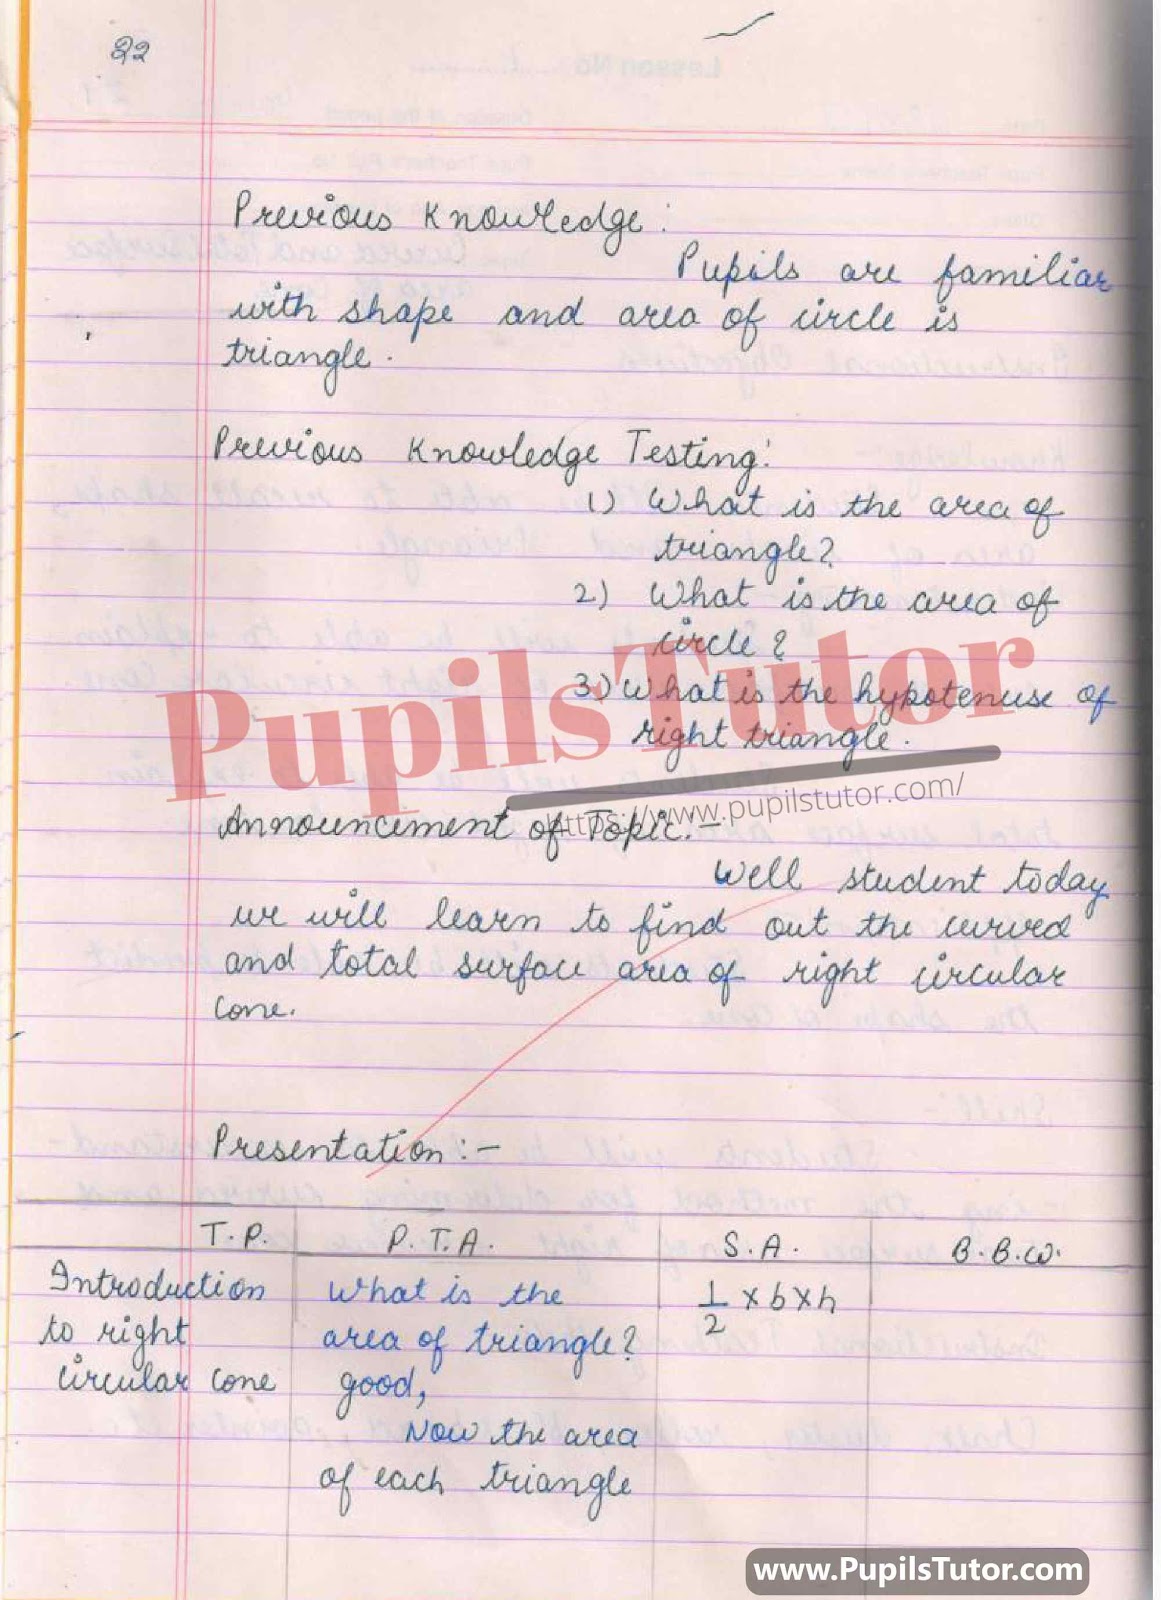 22
Previous Knowledge:
Pupils are familiar
with shape and area of circle is
triangle.
Previous Knowledge Testing:
1) What is the area of
triangle?
2) What is the area of
circle?
3) What is the hypotenuse of
right triangle.
Pupils Tutor
https://www.pupilstutor.com/
Announcement of Topic:-
Well student today
we will learn to find out the curved
and total surface area of right circular
cone.
Presentation:-
T.P. P.T.A. S.A. B.B.W.
Introduction What is the 1/2 × b × h
to right area of triangle?
circular cone good,
Now the area
of each triangle
www.PupilsTutor.com